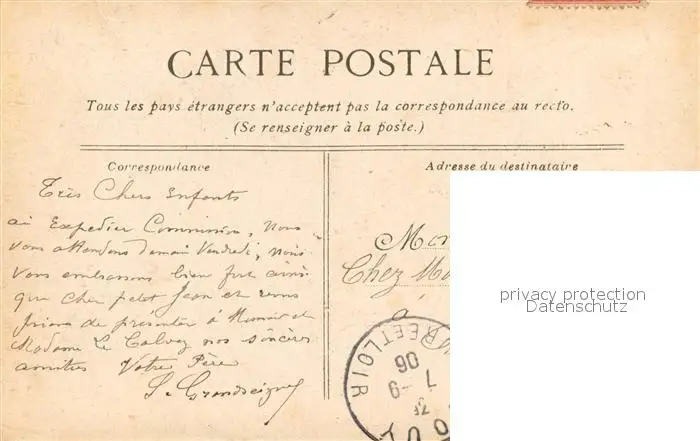 CARTE POSTALE
Tous les pays étrangers n'acceptent pas la correspondance au recto.
(Se renseigner à la poste.)
Correspondance
Très Chers Enfants
ai Expedier Commission, Nous
vous attendons demain Vendredi, nous
vous embrassons bien fort ainsi
que cher petit Jean et vous
prions de présenter à Monsieur et
Madame Le Calvez nos sincères
amitiés Votre Père
Adresse du destinataire
Mon
Chez M
à
RE ET LOIR
7 - 9
06
privacy protection
Datenschutz